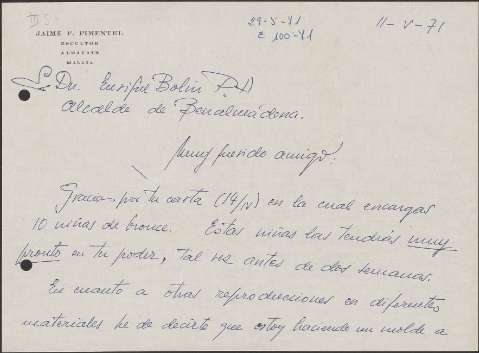 JAIME F. PIMENTEL
ESCULTOR
ALHAURIN
MALAGA
29-5-71
E 100-71
11-V-71
Enrique Bolin
Alcalde de Benalmádena.
Muy querido amigo:
Gracias por tu carta (14/IV) en la cual encargas
10 niñas de bronce. Estas niñas las tendrás muy
pronto en tu poder, tal vez antes de dos semanas.
En cuanto a otras reproducciones en diferentes
materiales he de decirte que estoy haciendo un molde a